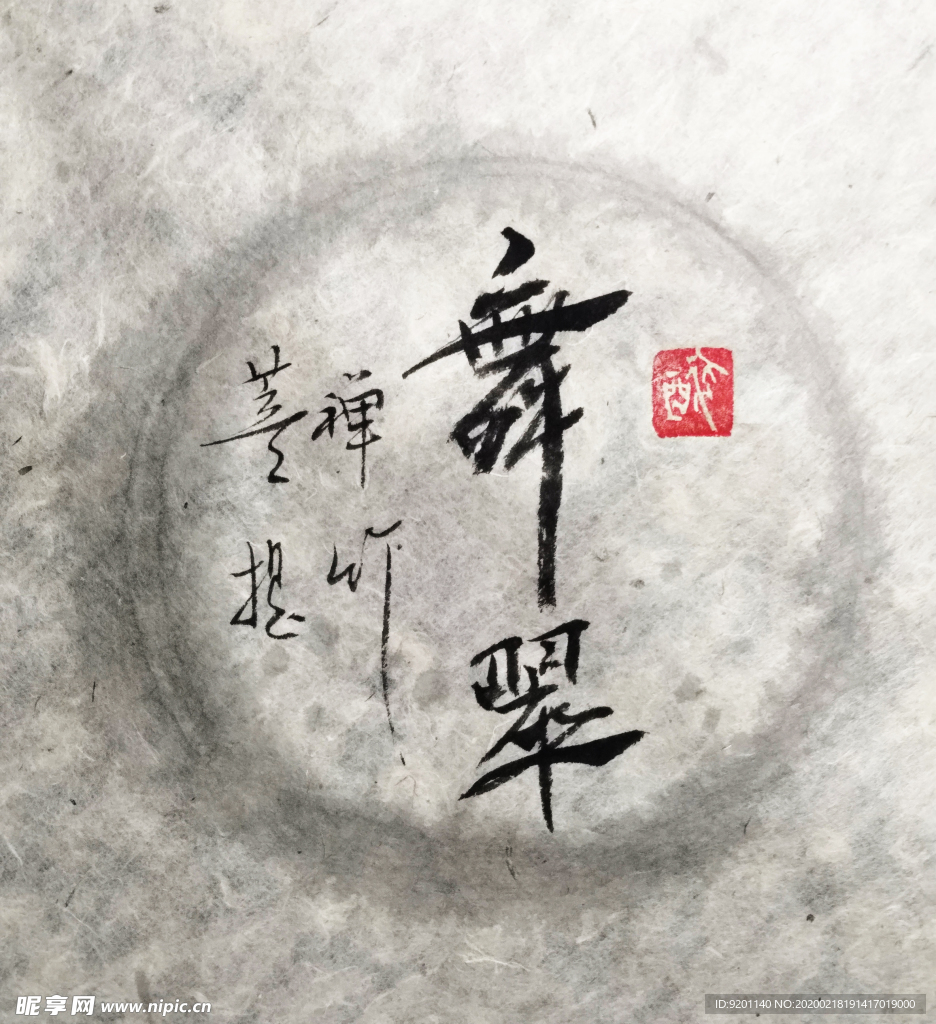 舞翠
禅竹
菩提
昵享网 www.nipic.cn
ID:9201140 NO:20200218191417019000